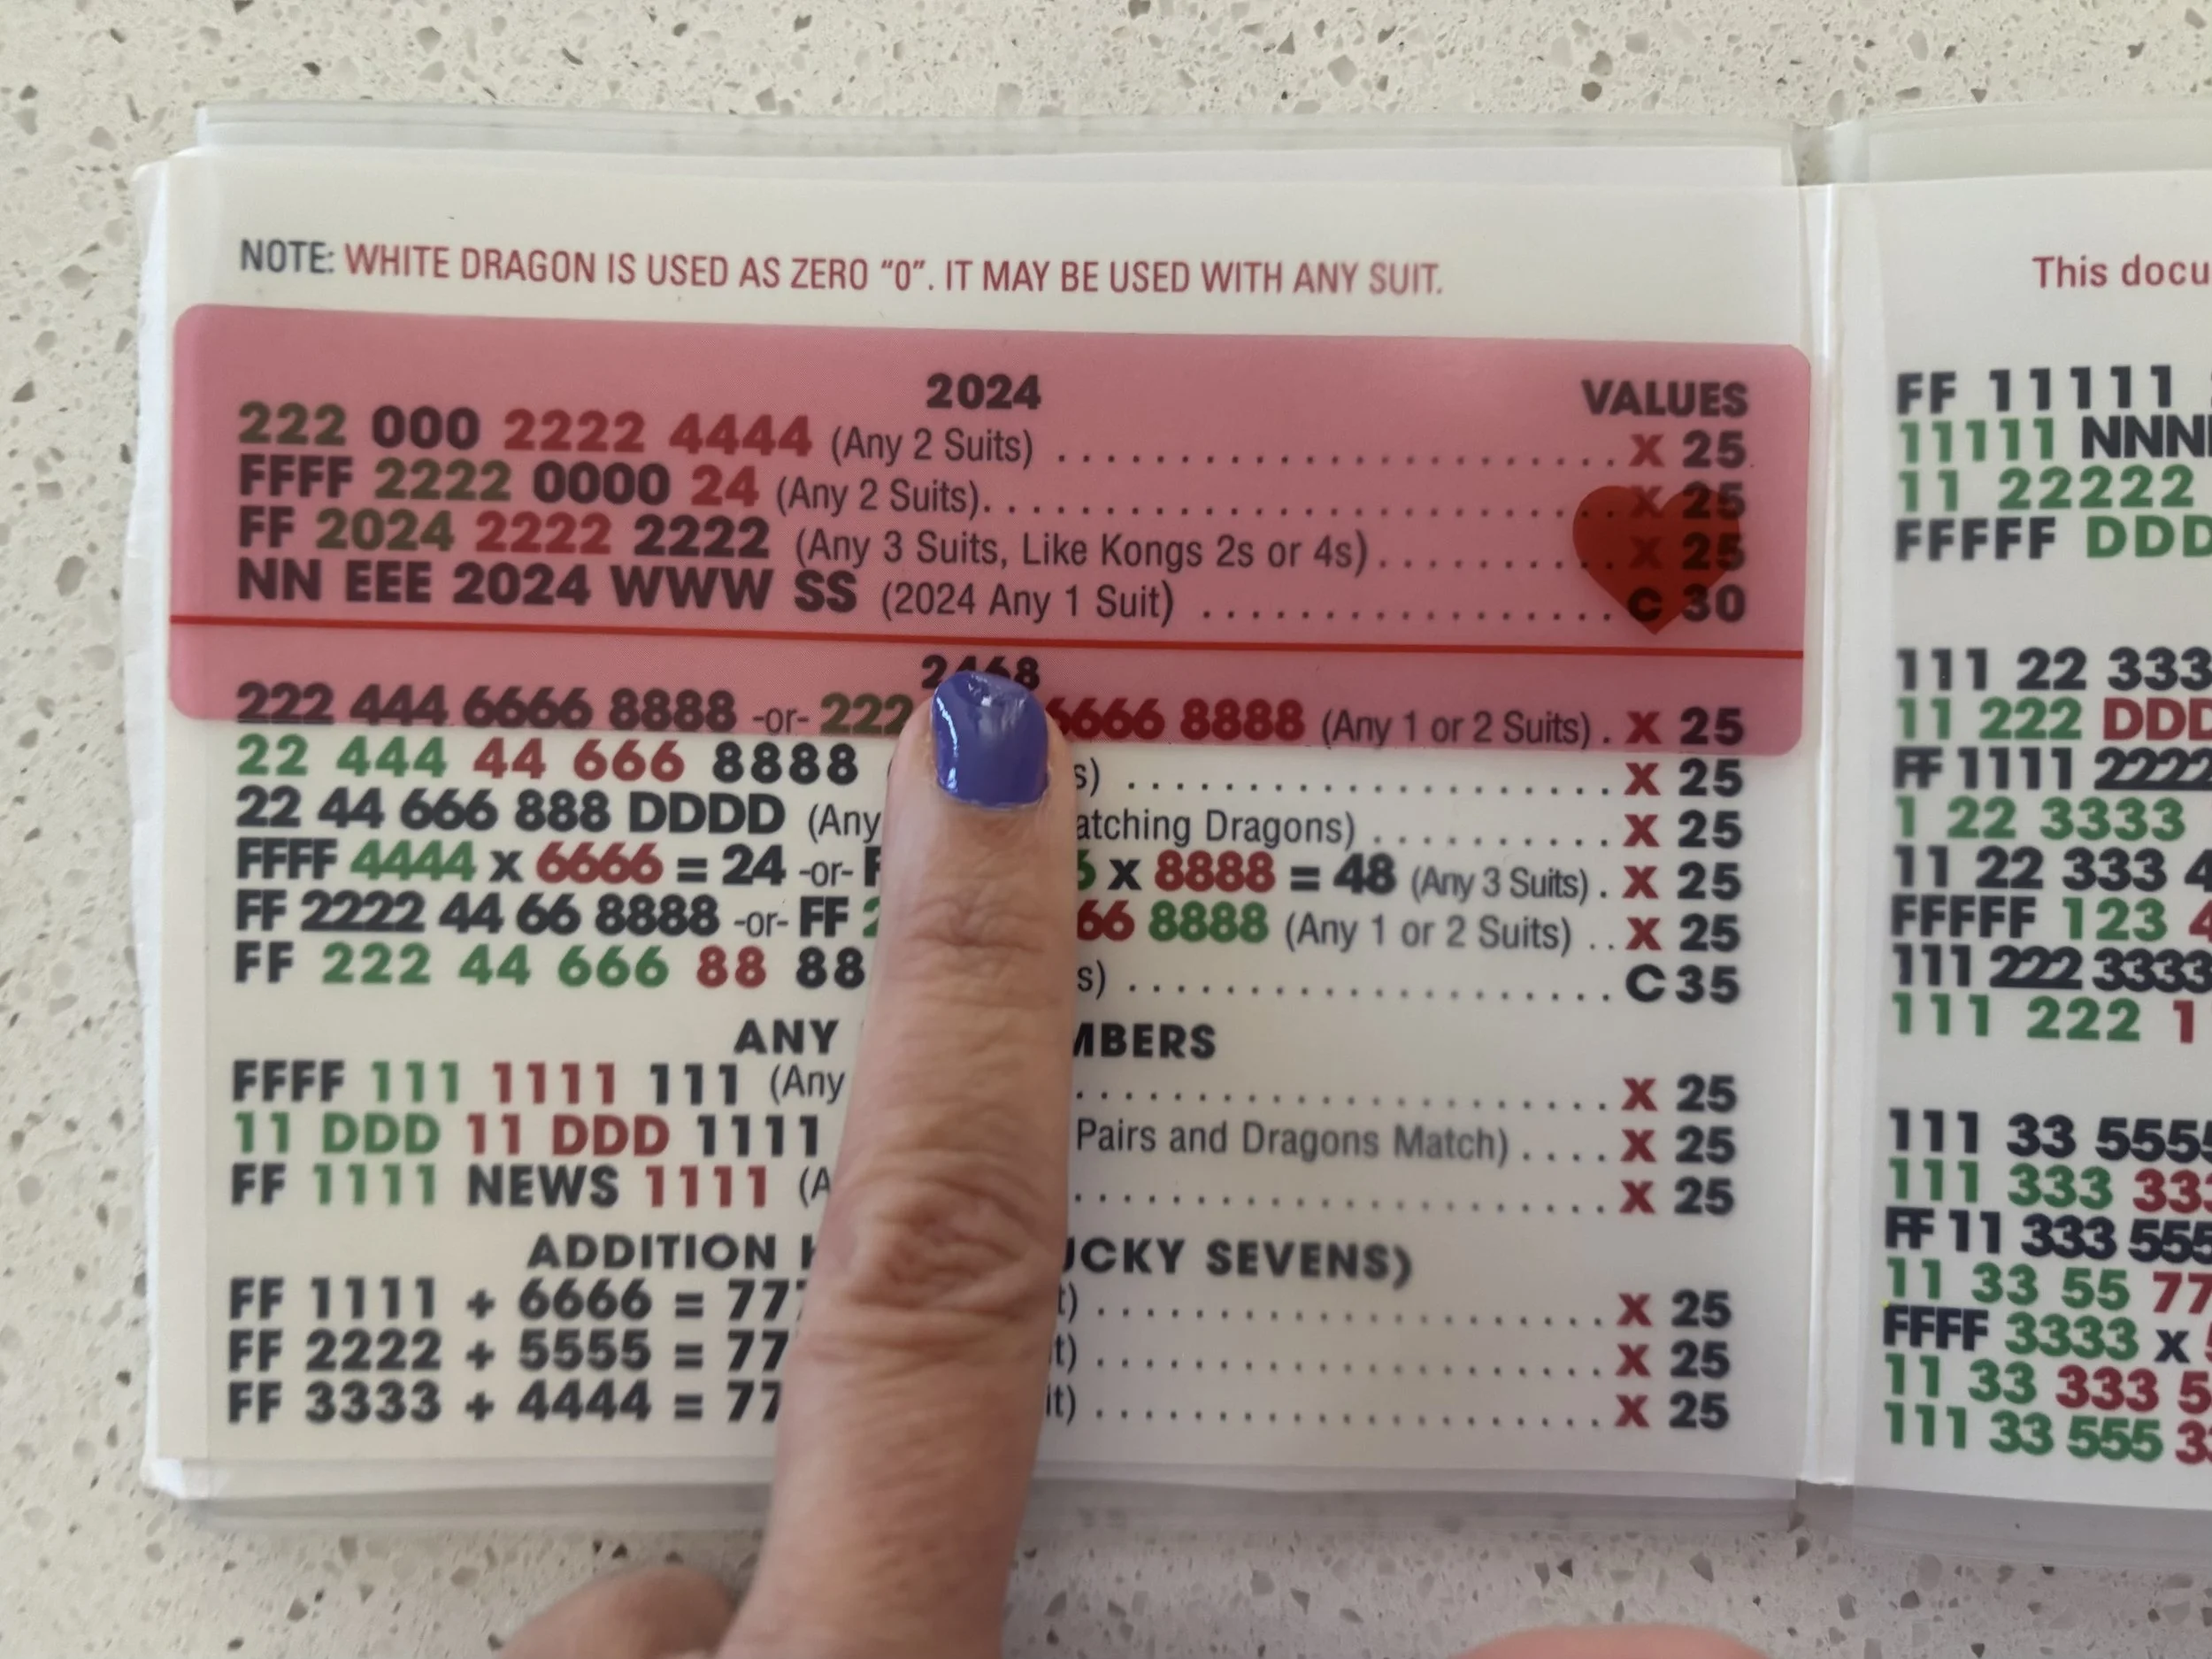 NOTE: WHITE DRAGON IS USED AS ZERO “0”. IT MAY BE USED WITH ANY SUIT.
2024 VALUES
222 000 2222 4444 (Any 2 Suits) X 25
FFFF 2222 0000 24 (Any 2 Suits) X 25
FF 2024 2222 2222 (Any 3 Suits, Like Kongs 2s or 4s) X 25
NN EEE 2024 WWW SS (2024 Any 1 Suit) C 30
2468
222 444 6666 8888 -or- 222 6666 8888 (Any 1 or 2 Suits) . X 25
22 444 44 666 8888 s) X 25
22 44 666 888 DDDD (Any atching Dragons) X 25
FFFF 4444 x 6666 = 24 -or- F 6 x 8888 = 48 (Any 3 Suits) . X 25
FF 2222 44 66 8888 -or- FF 2 66 8888 (Any 1 or 2 Suits) .. X 25
FF 222 44 666 88 88 s) C 35
ANY MBERS
FFFF 111 1111 111 (Any X 25
11 DDD 11 DDD 1111 Pairs and Dragons Match) .... X 25
FF 1111 NEWS 1111 (A X 25
ADDITION H UCKY SEVENS)
FF 1111 + 6666 = 777 t) X 25
FF 2222 + 5555 = 77 t) X 25
FF 3333 + 4444 = 77 it) X 25
This docu
FF 11111
11111 NNN
11 22222
FFFFF DDD
111 22 333
11 222 DDD
FF 1111 2222
1 22 3333
11 22 333 4
FFFFF 123 4
111 222 3333
111 222 1
111 33 5555
111 333 333
FF 11 333 555
11 33 55 77
FFFF 3333 x
11 33 333 5
111 33 555 33